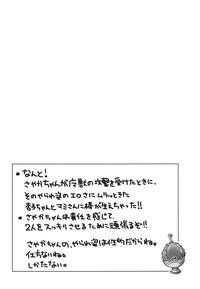 ・なんと！
さやかちゃんが魔獣の攻撃を受けたときに、
そのやられ姿のエロさにムラッときた
杏子ちゃんとマミさんに棒が生えちゃった!!
・さやかちゃんは責任を感じて、
2人をスッキリさせるために頑張るぞ!!
さやかちゃんの、やられ姿は性的だからね。
仕方ないね。
しかたない。